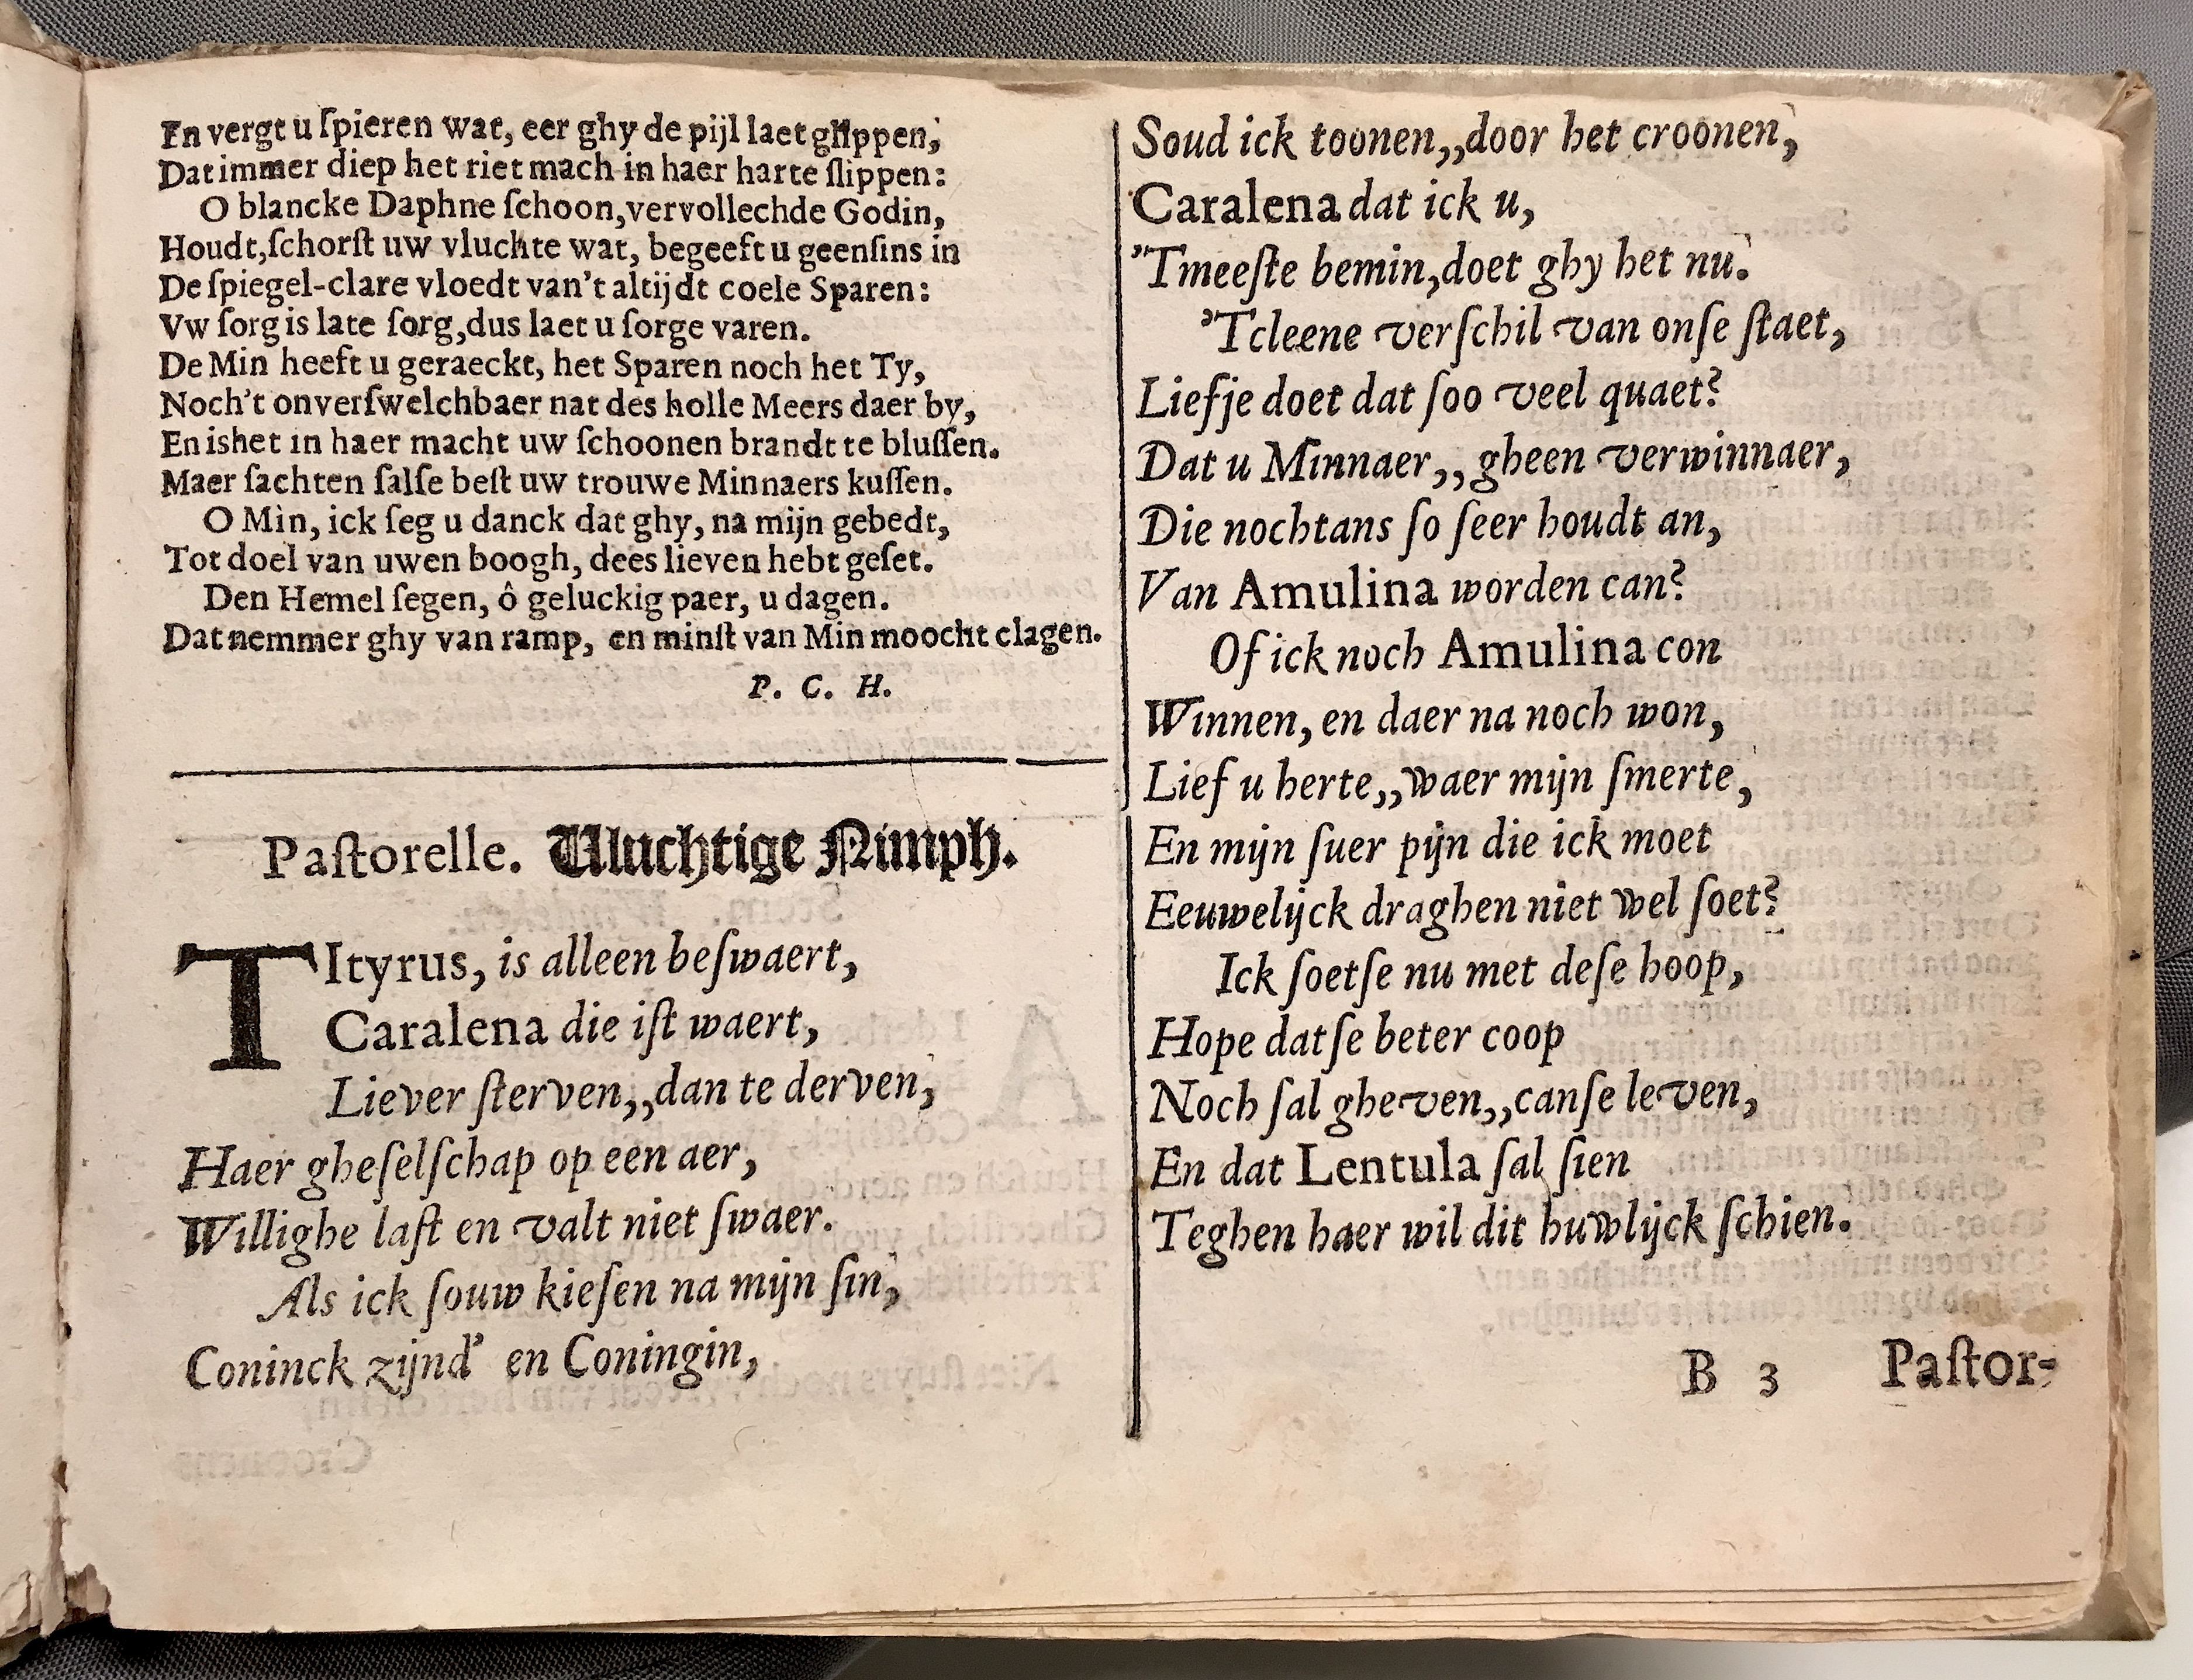 En vergt u ſpieren wat, eer ghy de pijl laet glippen,
Dat immer diep het riet mach in haer harte ſlippen:
O blancke Daphne ſchoon, vervollechde Godin,
Houdt, ſchorſt uw vluchte wat, begeeft u geenſins in
De ſpiegel-clare vloedt van't altijdt coele Sparen:
Vw ſorg is late ſorg, dus laet u ſorge varen.
De Min heeft u geraeckt, het Sparen noch het Ty,
Noch't onverſwelchbaer nat des holle Meers daer by,
En ishet in haer macht uw ſchoonen brandt te bluſſen.
Maer ſachten ſalſe beſt uw trouwe Minnaers kuſſen.
O Min, ick ſeg u danck dat ghy, na mijn gebedt,
Tot doel van uwen boogh, dees lieven hebt geſet.
Den Hemel ſegen, ô geluckig paer, u dagen.
Dat nemmer ghy van ramp, en minſt van Min moocht clagen.
P. C. H.
Paſtorelle. Uluchtige Nimph.
TItyrus, is alleen beſwaert,
Caralena die iſt waert,
Liever ſterven,,dan te derven,
Haer gheſelſchap op een aer,
Willighe laſt en valt niet ſwaer.
Als ick ſouw kieſen na mijn ſin,
Coninck zijnd' en Coningin,
Soud ick toonen,,door het croonen,
Caralena dat ick u,
'Tmeeſte bemin, doet ghy het nu.
'Tcleene verſchil van onſe ſtaet,
Liefje doet dat ſoo veel quaet?
Dat u Minnaer,, gheen verwinnaer,
Die nochtans ſo ſeer houdt an,
Van Amulina worden can?
Of ick noch Amulina con
Winnen, en daer na noch won,
Lief u herte,,waer mijn ſmerte,
En mijn ſuer pijn die ick moet
Eeuwelijck draghen niet wel ſoet?
Ick ſoetſe nu met deſe hoop,
Hope datſe beter coop
Noch ſal gheven,,canſe leven,
En dat Lentula ſal ſien
Teghen haer wil dit huwlijck ſchien.
B 3 Paſtor-